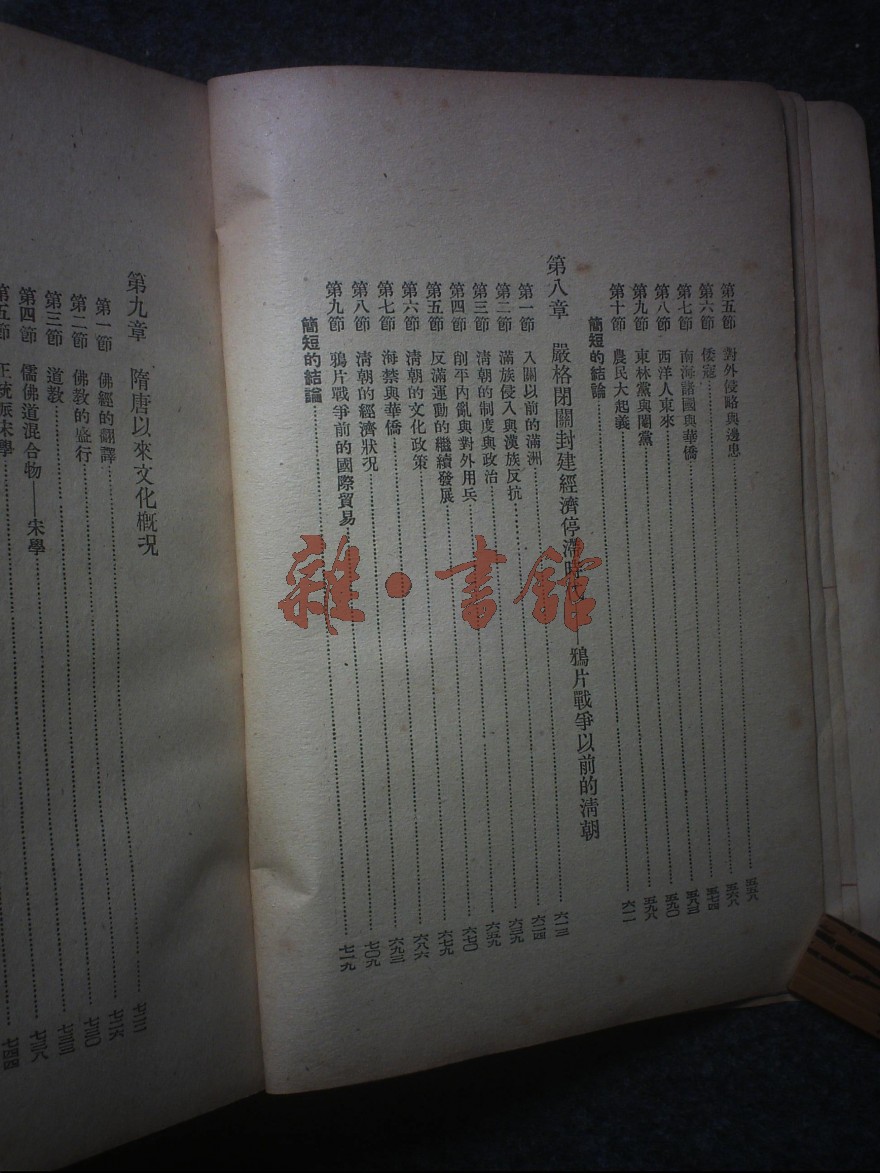 第五節 對外侵略與邊患 五五八
第六節 倭寇 五六八
第七節 南海諸國與華僑 五七四
第八節 西洋人東來 五八三
第九節 東林黨與閹黨 五九〇
第十節 農民大起義 五九八
簡短的結論 六一一
第八章 嚴格閉關封建經濟停滯時代——鴉片戰爭以前的清朝
第一節 入關以前的滿洲 六一三
第二節 滿族侵入與漢族反抗 六二四
第三節 清朝的制度與政治 六三九
第四節 削平內亂與對外用兵 六五九
第五節 反滿運動的繼續發展 六七〇
第六節 清朝的文化政策 六七九
第七節 海禁與華僑 六八六
第八節 清朝的經濟狀况 六九三
第九節 鴉片戰爭前的國際貿易 七〇九
簡短的結論 七一九
第九章 隋唐以來文化概况 七二二
第一節 佛經的翻譯 七二六
第二節 佛教的盛行 七三〇
第三節 道教 七三三
第四節 儒佛道混合物——宋學 七三八
第五節 正統派宋學 七四四
雜·書館